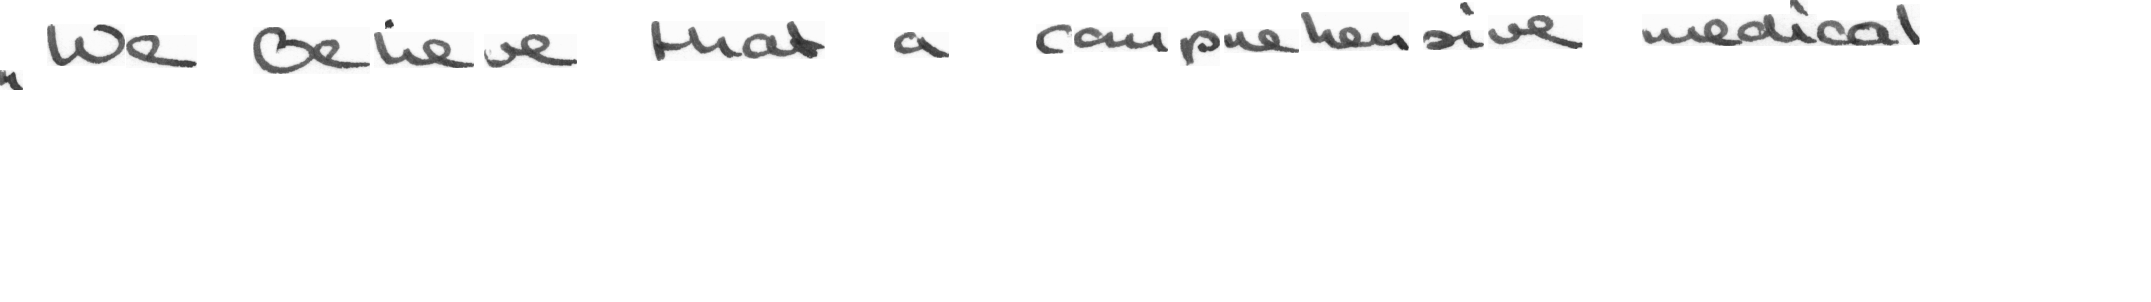 „We believe that a comprehensive medical